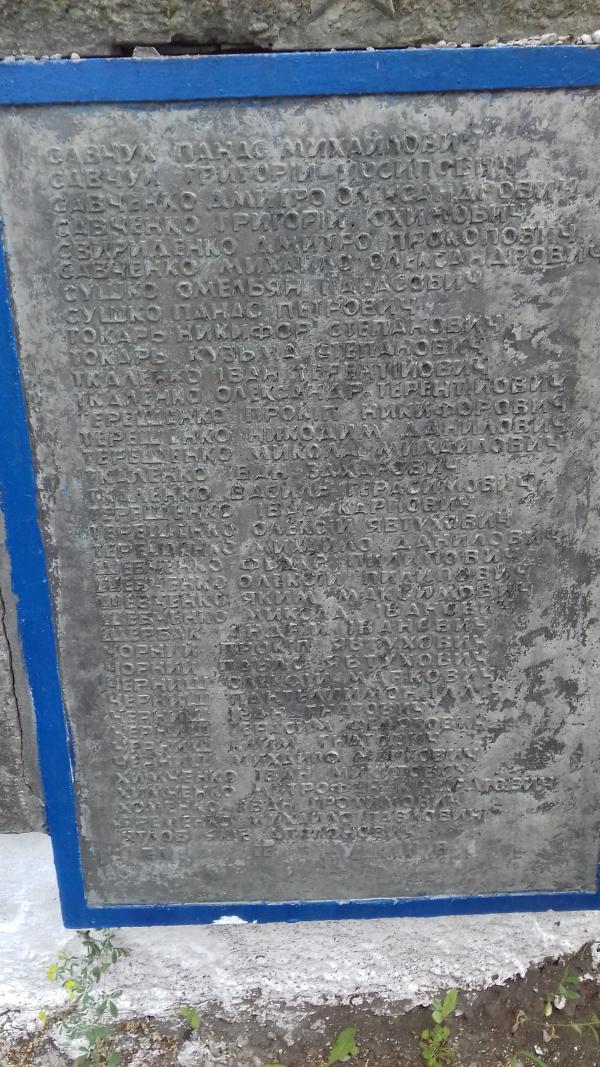 САВЧУК ПАНАС МИХАЙЛОВИЧ
САВЧУК ГРИГОРІЙ ЙОСИПОВИЧ
САВЧЕНКО ДМИТРО ОЛЕКСАНДРОВИЧ
САВЧЕНКО ГРИГОРІЙ ЮХИМОВИЧ
СВИРИДЕНКО ДМИТРО ПРОКОПОВИЧ
САВЧЕНКО МИХАЙЛО ОЛЕКСАНДРОВИЧ
СУШКО ОМЕЛЬЯН ПАНАСОВИЧ
СУШКО ПАНАС ПЕТРОВИЧ
ТОКАРЬ НИКИФОР СТЕПАНОВИЧ
ТОКАРЬ КУЗЬМА СТЕПАНОВИЧ
ТКАЛЕНКО ІВАН ТЕРЕНТІЙОВИЧ
ТКАЛЕНКО ОЛЕКСАНДР ТЕРЕНТІЙОВИЧ
ТЕРЕЩЕНКО ПРОКІП НИКИФОРОВИЧ
ТЕРЕЩЕНКО НИКОДИМ ДАНИЛОВИЧ
ТЕРЕЩЕНКО МИКОЛА МИХАЙЛОВИЧ
ТКАЛЕНКО ІВАН ЗАХАРОВИЧ
ТКАЛЕНКО ВАСИЛЬ ГЕРАСИМОВИЧ
ТЕРЕЩЕНКО ІВАН КАРПОВИЧ
ТЕРЕЩЕНКО ОЛЕКСІЙ ЯВТУХОВИЧ
ТЕРЕЩЕНКО МИХАЙЛО ДАНИЛОВИЧ
ШЕВЧЕНКО ПИЛИПОВИЧ
ШЕВЧЕНКО ОЛЕКСІЙ ПИЛИПОВИЧ
ШЕВЧЕНКО ЯКИМ МАКСИМОВИЧ
ШЕВЧЕНКО МИКОЛА ІВАНОВИЧ
ЩЕРБАК АНДРІЙ ІВАНОВИЧ
ЧОРНИЙ ПРОКІП ЯВТУХОВИЧ
ЧОРНИЙ ПАВЛО ЯВТУХОВИЧ
ЧЕРНИШ ОЛЕКСІЙ МАРКОВИЧ
ЧЕРНИШ ПАНТЕЛИМОН
ЧЕРНИШ ІВАН ТИТОВИЧ
ЧЕРНИШ
ЧЕРНИШ
ЧЕРНИШ МИХАЙЛО МАРКОВИЧ
ХИМЧЕНКО ІВАН МИКИТОВИЧ
ХИМЧЕНКО МИТРОФАН
ХОМЕНКО ІВАН
МИХАЙЛО ПАВКОВИЧ